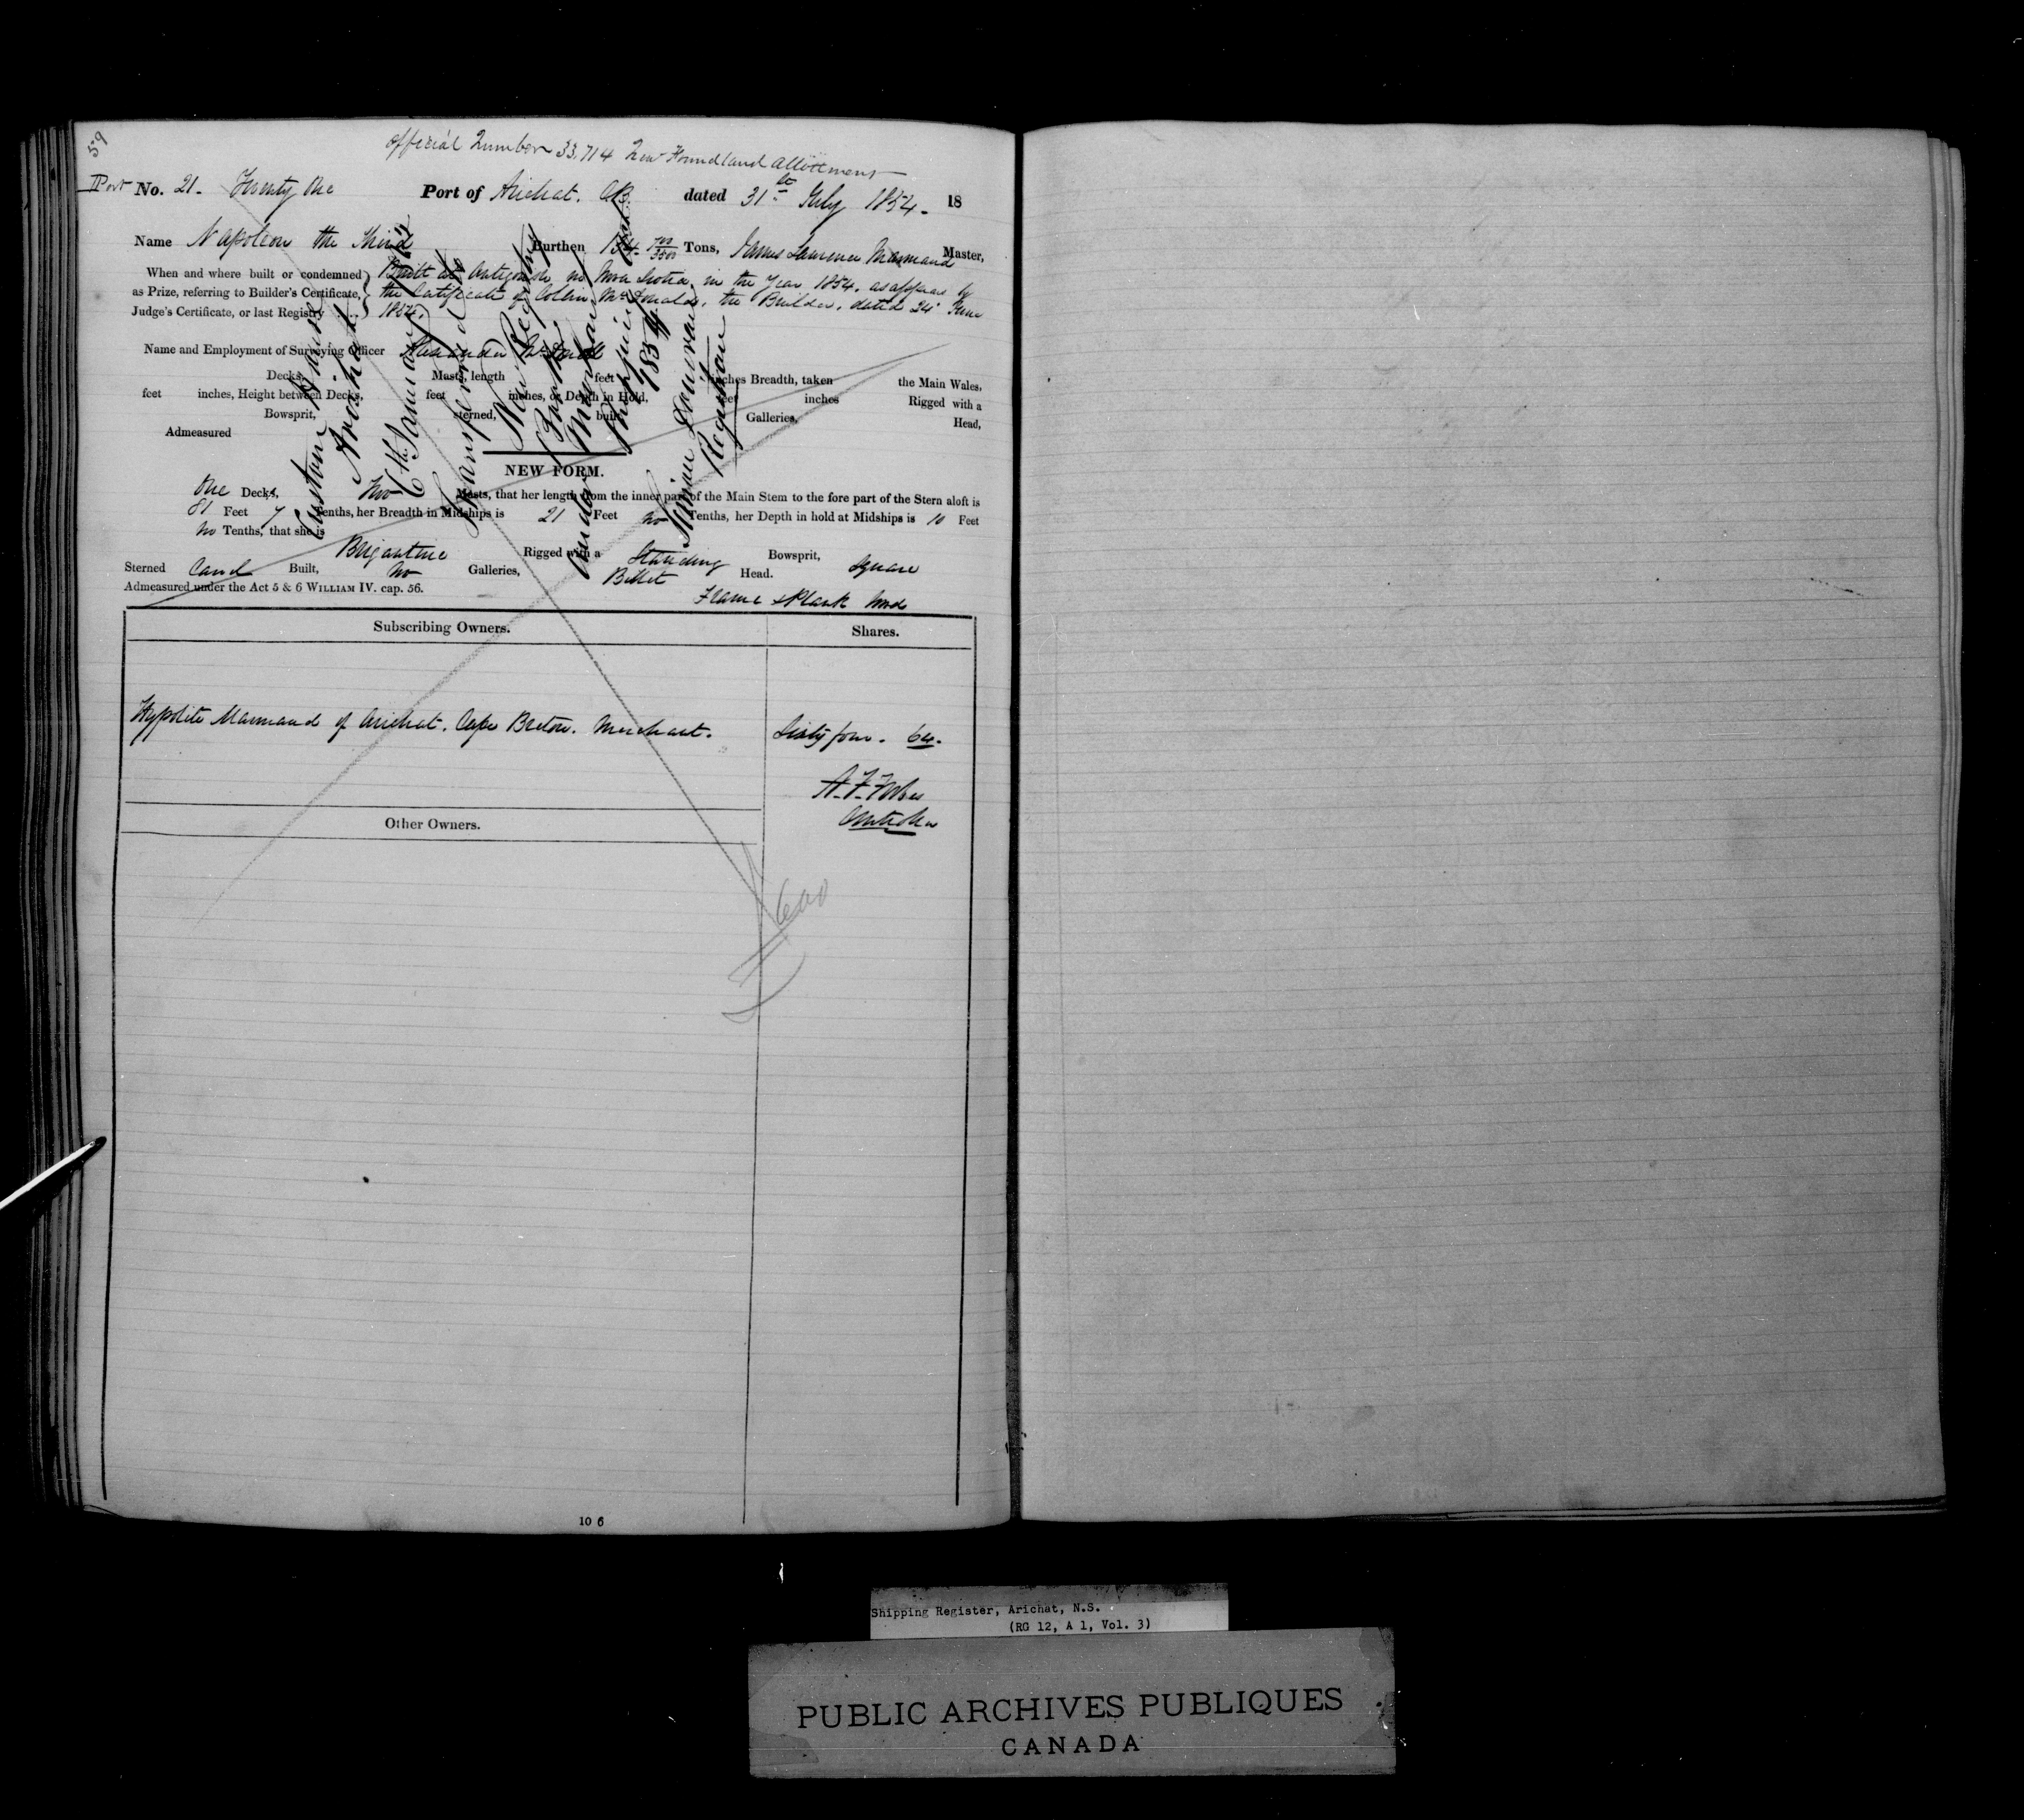 59
Official Number 33,714 New Foundland Allotment
Port No. 21. Twenty One Port of Arichat. CB. dated 31st July 1854. 18
Name Napoleon the Third Burthen Tons, James Lawrence Marmaud Master,
When and where built or condemned Built at Antigonish in Nova Scotia, in the Year 1854, as appears by
as Prize, referring to Builder's Certificate, the Certificate of Collin McDonald, the Builder, dated 24 June
Judge's Certificate, or last Registry 1854.
Name and Employment of Surveying Officer Alexander
Decks, Masts, length feet inches Breadth, taken the Main Wales,
feet inches, Height between Decks, feet inches, or Depth in Hold, feet inches Rigged with a
Bowsprit, sterned, built Galleries, Head,
Admeasured
Custom House
Arichat
6th January
Transferred
New Registry
Book
under Merchant
Shipping
1854
Registrar
NEW FORM.
One Decks, Two Masts, that her length from the inner part of the Main Stem to the fore part of the Stern aloft is
81 Feet 7 Tenths, her Breadth in Midships is 21 Feet no Tenths, her Depth in hold at Midships is 10 Feet
no Tenths, that she is
Brigantine Rigged with a Standing Bowsprit, Square
Sterned Carvel Built, No Galleries, Billet Head.
Admeasured under the Act 5 & 6 WILLIAM IV. cap. 56.
Frame & Plank Wood
Subscribing Owners. Shares.
Hypolite Marmaud of Arichat. Cape Breton. Merchant. Sixty four. 64.
Other Owners.
£600
10 6
Shipping Register, Arichat, N.S.
(RG 12, A 1, Vol. 3)
PUBLIC ARCHIVES PUBLIQUES
CANADA